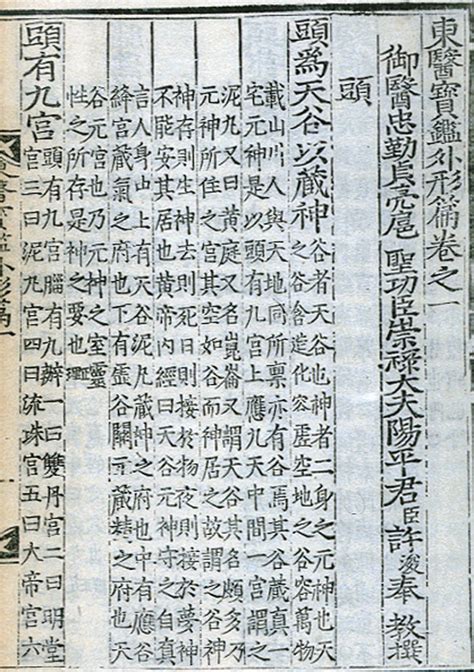 東醫寶鑑外形篇卷之一
御醫忠勤貞亮扈 聖功臣崇祿大夫陽平君臣許浚奉 教撰
頭
頭爲天谷以藏神
谷者天谷也神者一身之元神也
天之谷含造化容虛空地之谷容萬物
載山川人與天地同所稟亦有谷焉其谷藏眞一
宅元神是以頭有九宮上應九天中間一宮謂之
泥丸又曰黃庭又名崑崙又謂天谷其名頗多乃
元神所住之宮其空如谷而神居之故謂之谷神
神存則生神去則死日則接於物夜則接於夢神
不能安其居也黃帝內經曰天谷元神守之自眞
言人身中上有天谷泥丸藏神之府也中有應谷
絳宮藏氣之府也下有靈谷關元藏精之府也天
谷元宮也乃元神之室靈
性之所存是神之要也
頭有九宮
頭有九宮腦有九瓣一曰雙丹宮二曰明堂
宮三曰泥丸宮四曰流珠宮五曰大帝宮六